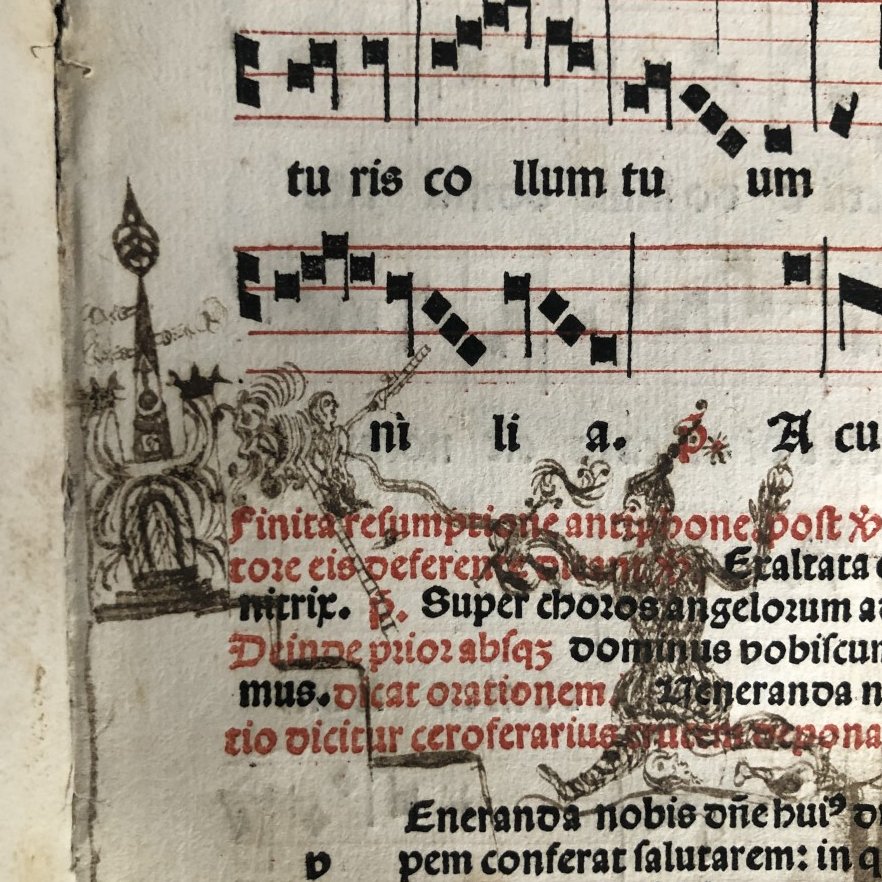 tu ris co llum tu um
nì li a. p. A cu
Finita resumptione antiphone. post
tore eis deferente dicant Exaltata
nitrix. p. Super choros angelorum
Deinde prior absqꝫ dominus vobiscu
mus. dicat orationem Veneranda
tio dicitur ceroferarius crucem depona
Eneranda nobis dñe huiꝰ
v pem conferat salutarem: in